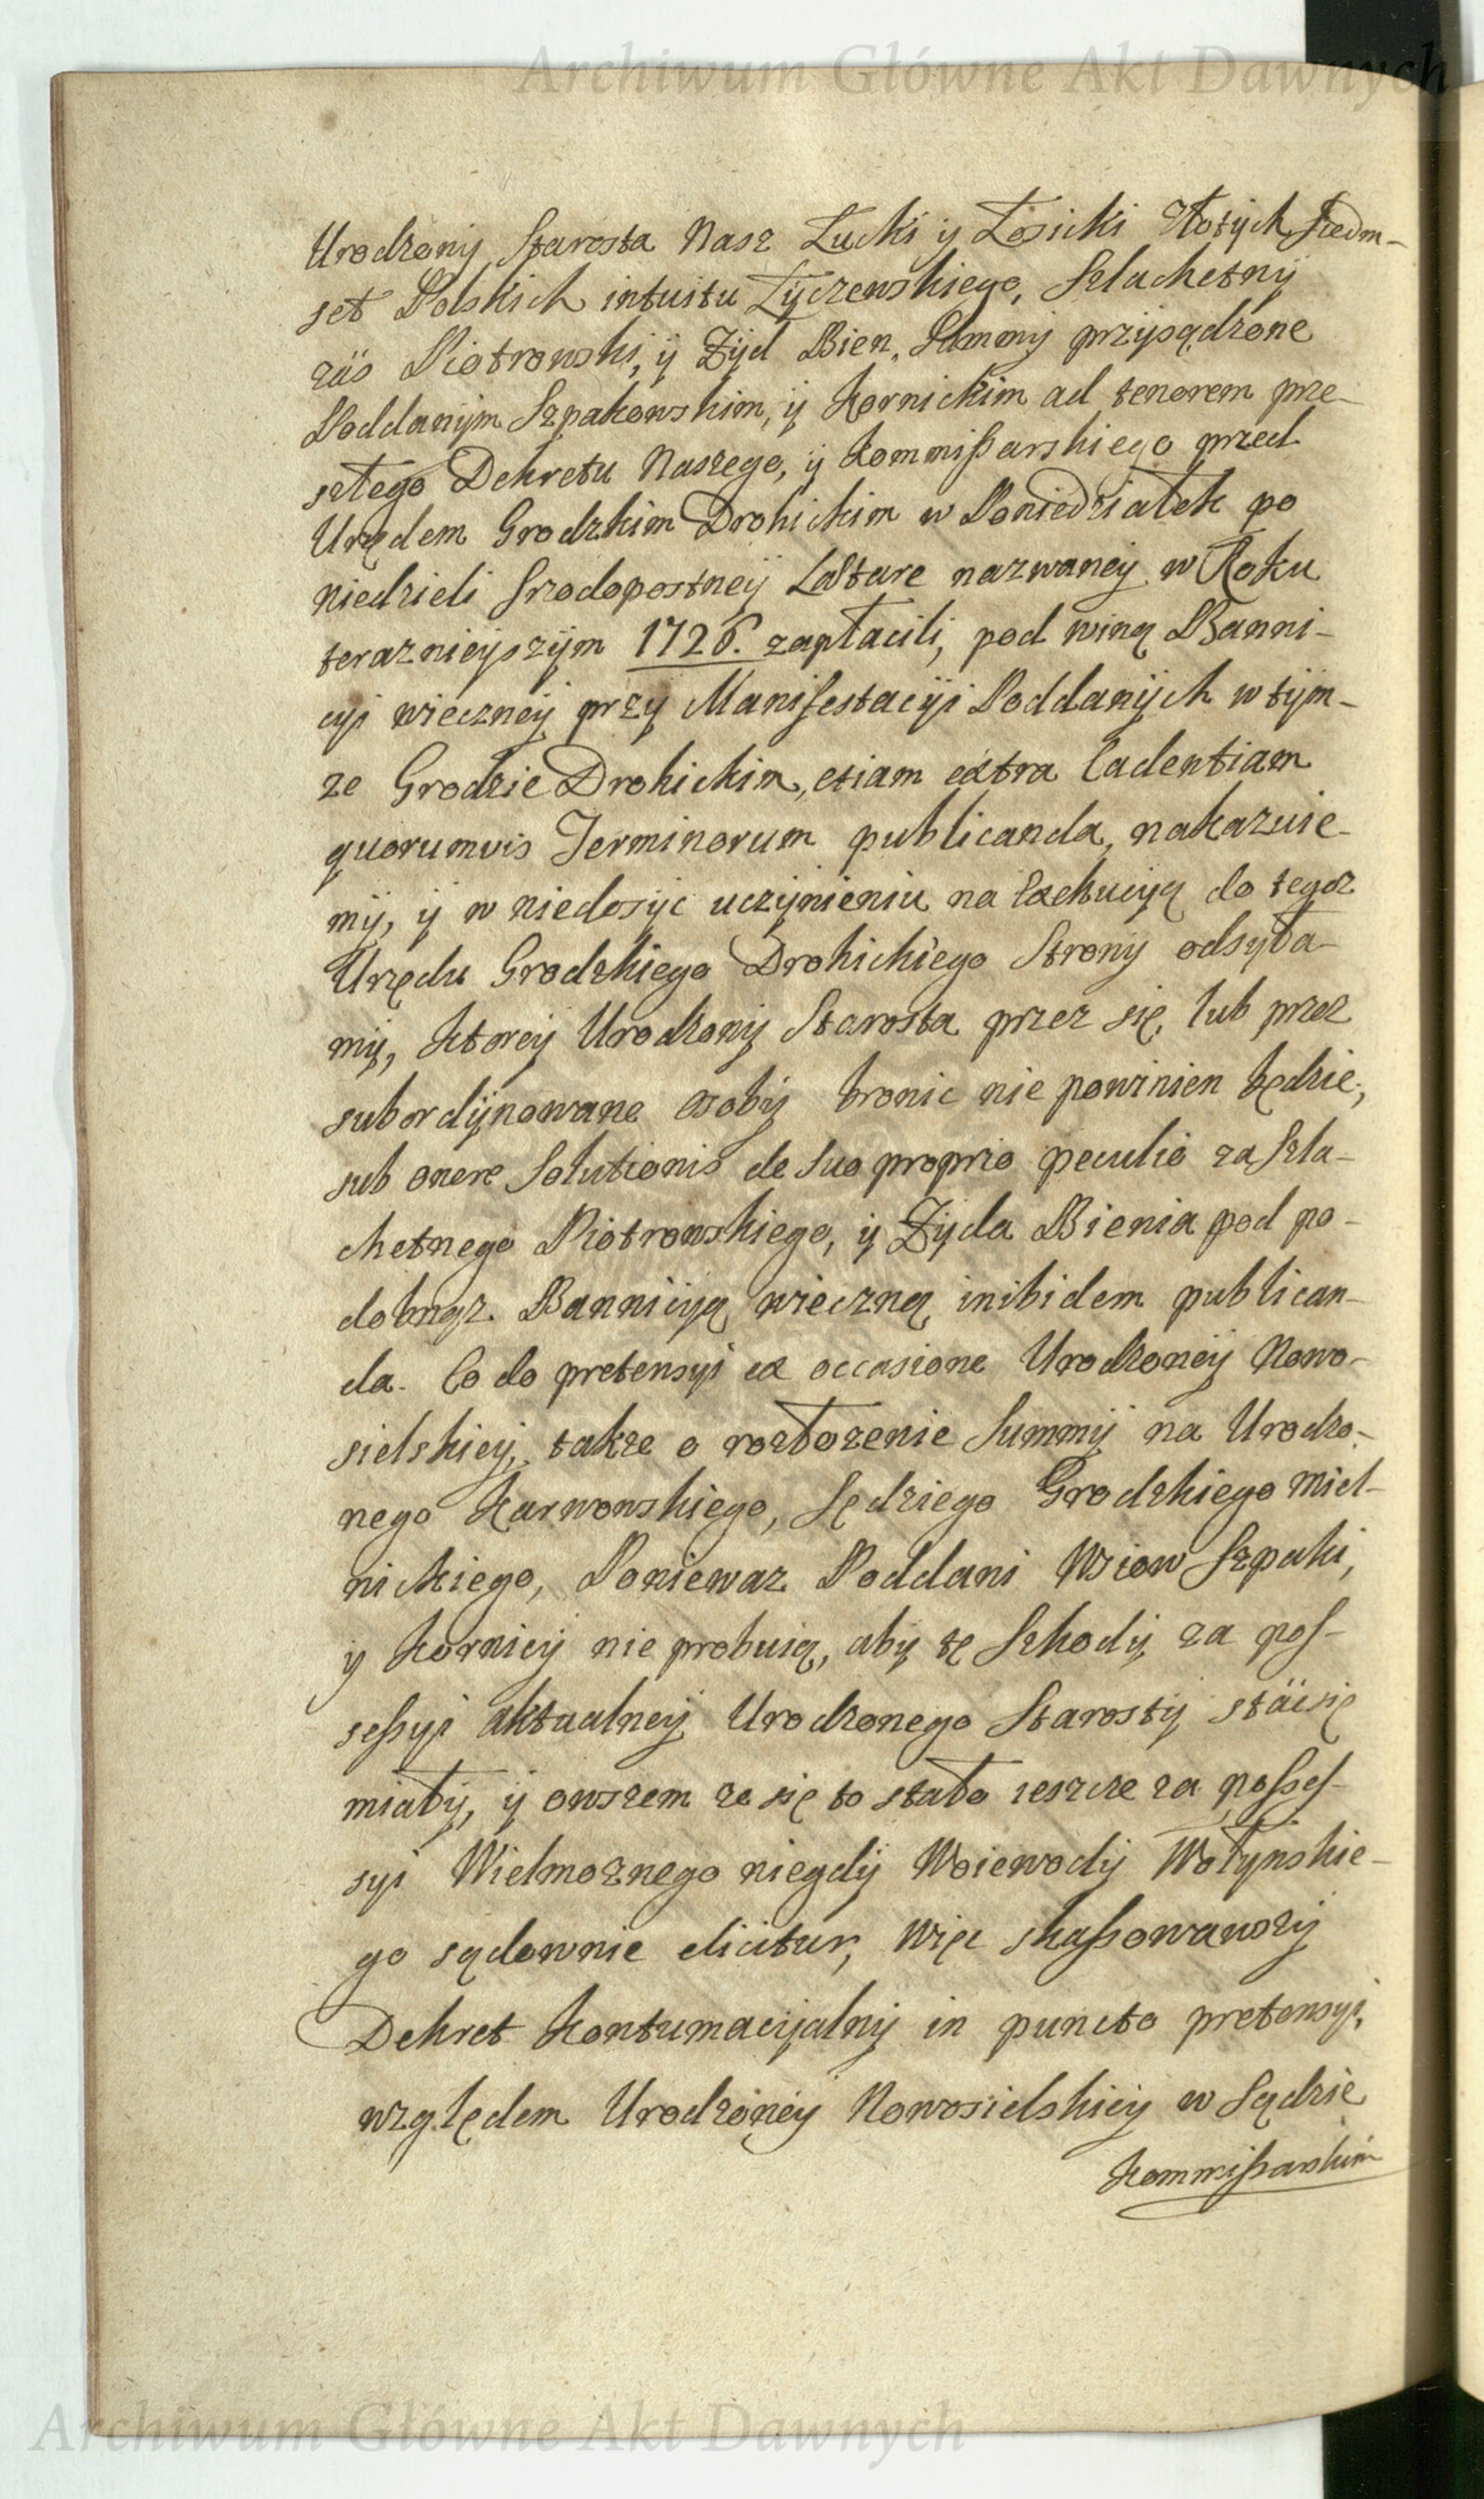 Archiwum Główne Akt Dawnych
Urodzony Starosta Nasz Łucki y Łosicki Złotych Siedm-
set Polskich intuitu Łyczewskiego, Szlachetny
zaś Piotrowski, y Żyd Bien, Summy przysądzone
Poddanym Szpakowskim, y Kornickim ad tenorem prze-
szłego Dekretu Naszego, y Kommißarskiego przed
Urzędem Grodzkim Drohickim w Poniedziałek po
niedzieli Srzodopostney Lætare nazwaney w Roku
teraznieyszym 1726. zapłacili, pod winą Banni-
cyi wieczney przy Manifestacyi Poddanych w tym-
ze Grodzie Drohickim, etiam extra Cadentiam
quorumvis Terminorum publicanda, nakazuie-
my, y w niedosyc uczynieniu na Exekucyą do tegoz
Urzędu Grodzkiego Drohickiego Strony odsyła-
my, ktorey Urodzony Starosta przez się, lub przez
subordynowane osoby bronic nie powinien będzie,
sub onere Solutionis de Suo proprio peculio za Szla-
chetnego Piotrowskiego, y Żyda Bienia pod po-
dobnąz Bannicyą wieczną inibidem publican-
da. Co do pretensyi ex occasione Urodzoney Nowo-
sielskiey, takze o rozłozenie Summy na Urodzo-
nego Karwowskiego, Sędziego Grodzkiego Miel-
nickiego, Poniewaz Poddani Wsiow Szpaki,
y Kornicy nie probuią, aby te Szkody za pos-
seßyi aktualney Urodzonego Starosty stać się
miały, y owszem ze się to stało ieszcze za poßes-
syi Wielmoznego niegdy Woiewody Wołynskie-
go sądownie elicitur, Więc skaßowawszy
Dekret Kontumacyalny in puncto pretensyi,
względem Urodzoney Nowosielskiey w Sądzie
Kommißarskim
Archiwum Główne Akt Dawnych